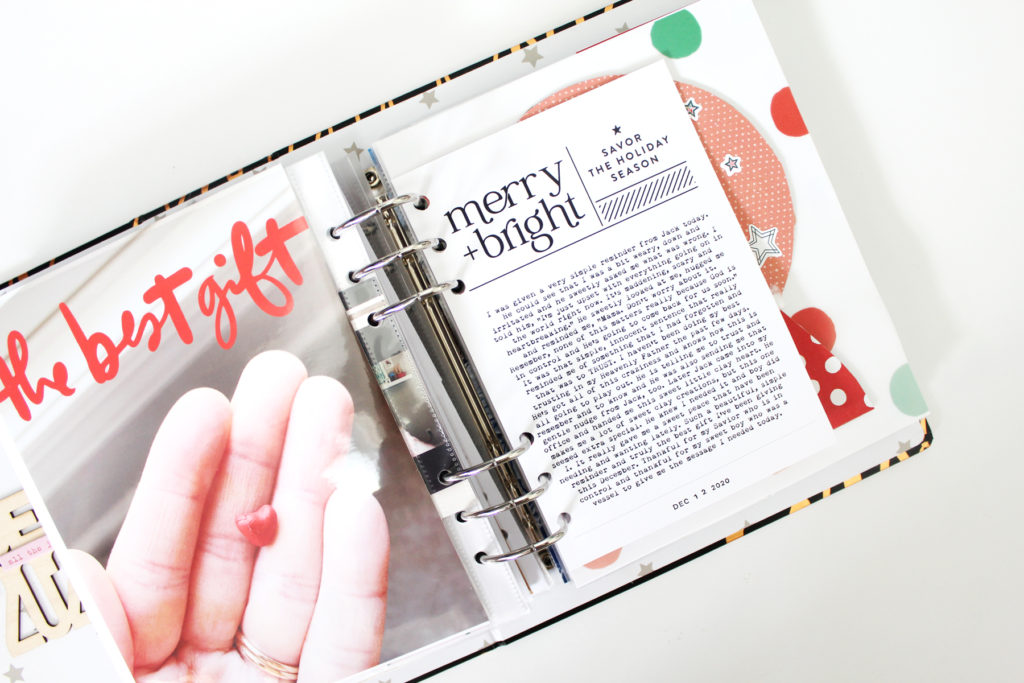 the best gift
all the
merry
+bright
SAVOR
THE HOLIDAY
SEASON
I was given a very simple reminder from Jack today.
He could see that I was a bit weary, down and
irritated and he sweetly asked me what was wrong. I
told him, "I'm just upset with everything going on in
the world right now. It's maddening, scary and
heartbreaking." He sweetly looked at me, hugged me
and reminded me, "Mama. Don't worry about it.
Remember, none of this matters really because God is
in control and He's going to come back for us soon!"
It was that simple, innocent sentence that really
reminded me of something that I had forgotten and
that was to TRUST. I haven't been doing my best
trusting in my Heavenly Father the last few days.
He's got all of this craziness and knows how this is
all going to play out. He is telling me to trust and
remember and to know. He was also sending me that
gentle nudge from Jack, too. Later Jack came into my
office and handed me this sweet little clay heart. He
makes me a lot of sweet clay creations, but this one
seemed extra special. He knew I needed it and boy did
I. It really gave me a sweet peace that have been
needing and wanting lately. Such a beautiful, simple
reminder and truly the best gift I've been giving
this December. Thankful for my Savior who is in
control and thankful for my sweet boy who was a
vessel to give me the message I needed today.
DEC 12 2020